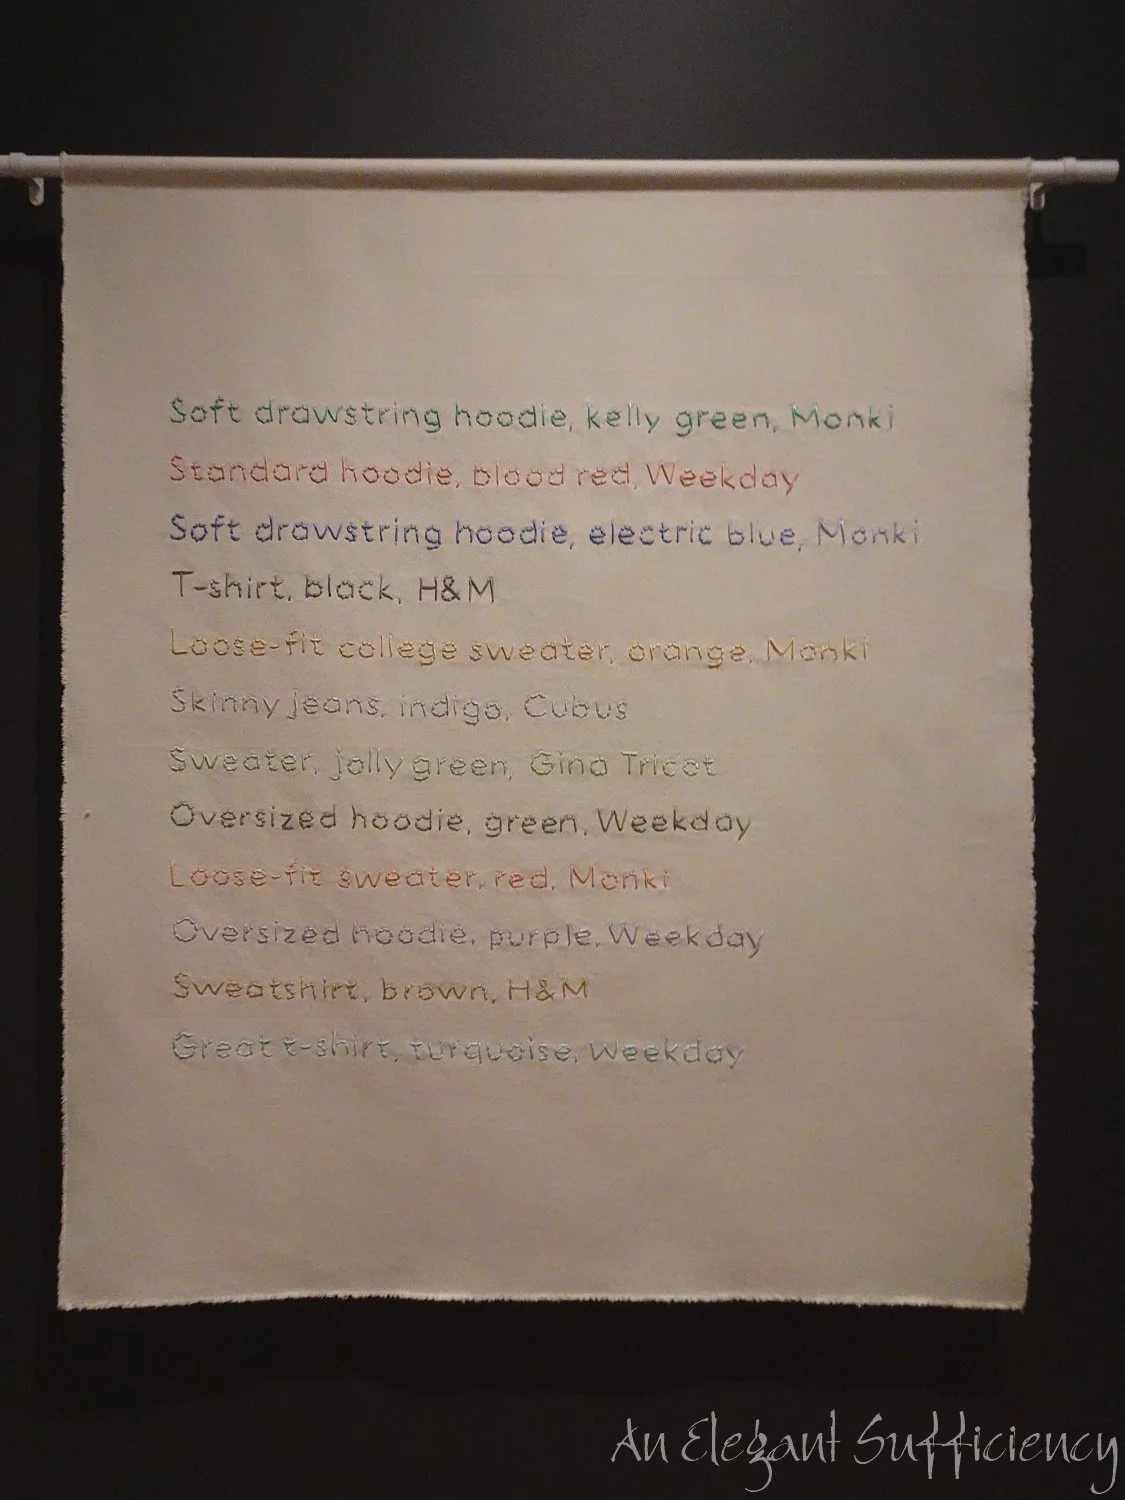 Soft drawstring hoodie, kelly green, Monki
Standard hoodie, blood red, Weekday
Soft drawstring hoodie, electric blue, Monki
T-shirt, black, H&M
Loose-fit college sweater, orange, Monki
Skinny jeans, indigo, Cubus
Sweater, jolly green, Gina Tricot
Oversized hoodie, green, Weekday
Loose-fit sweater, red, Monki
Oversized hoodie, purple, Weekday
Sweatshirt, brown, H&M
Great t-shirt, turquoise, Weekday
An Elegant Sufficiency